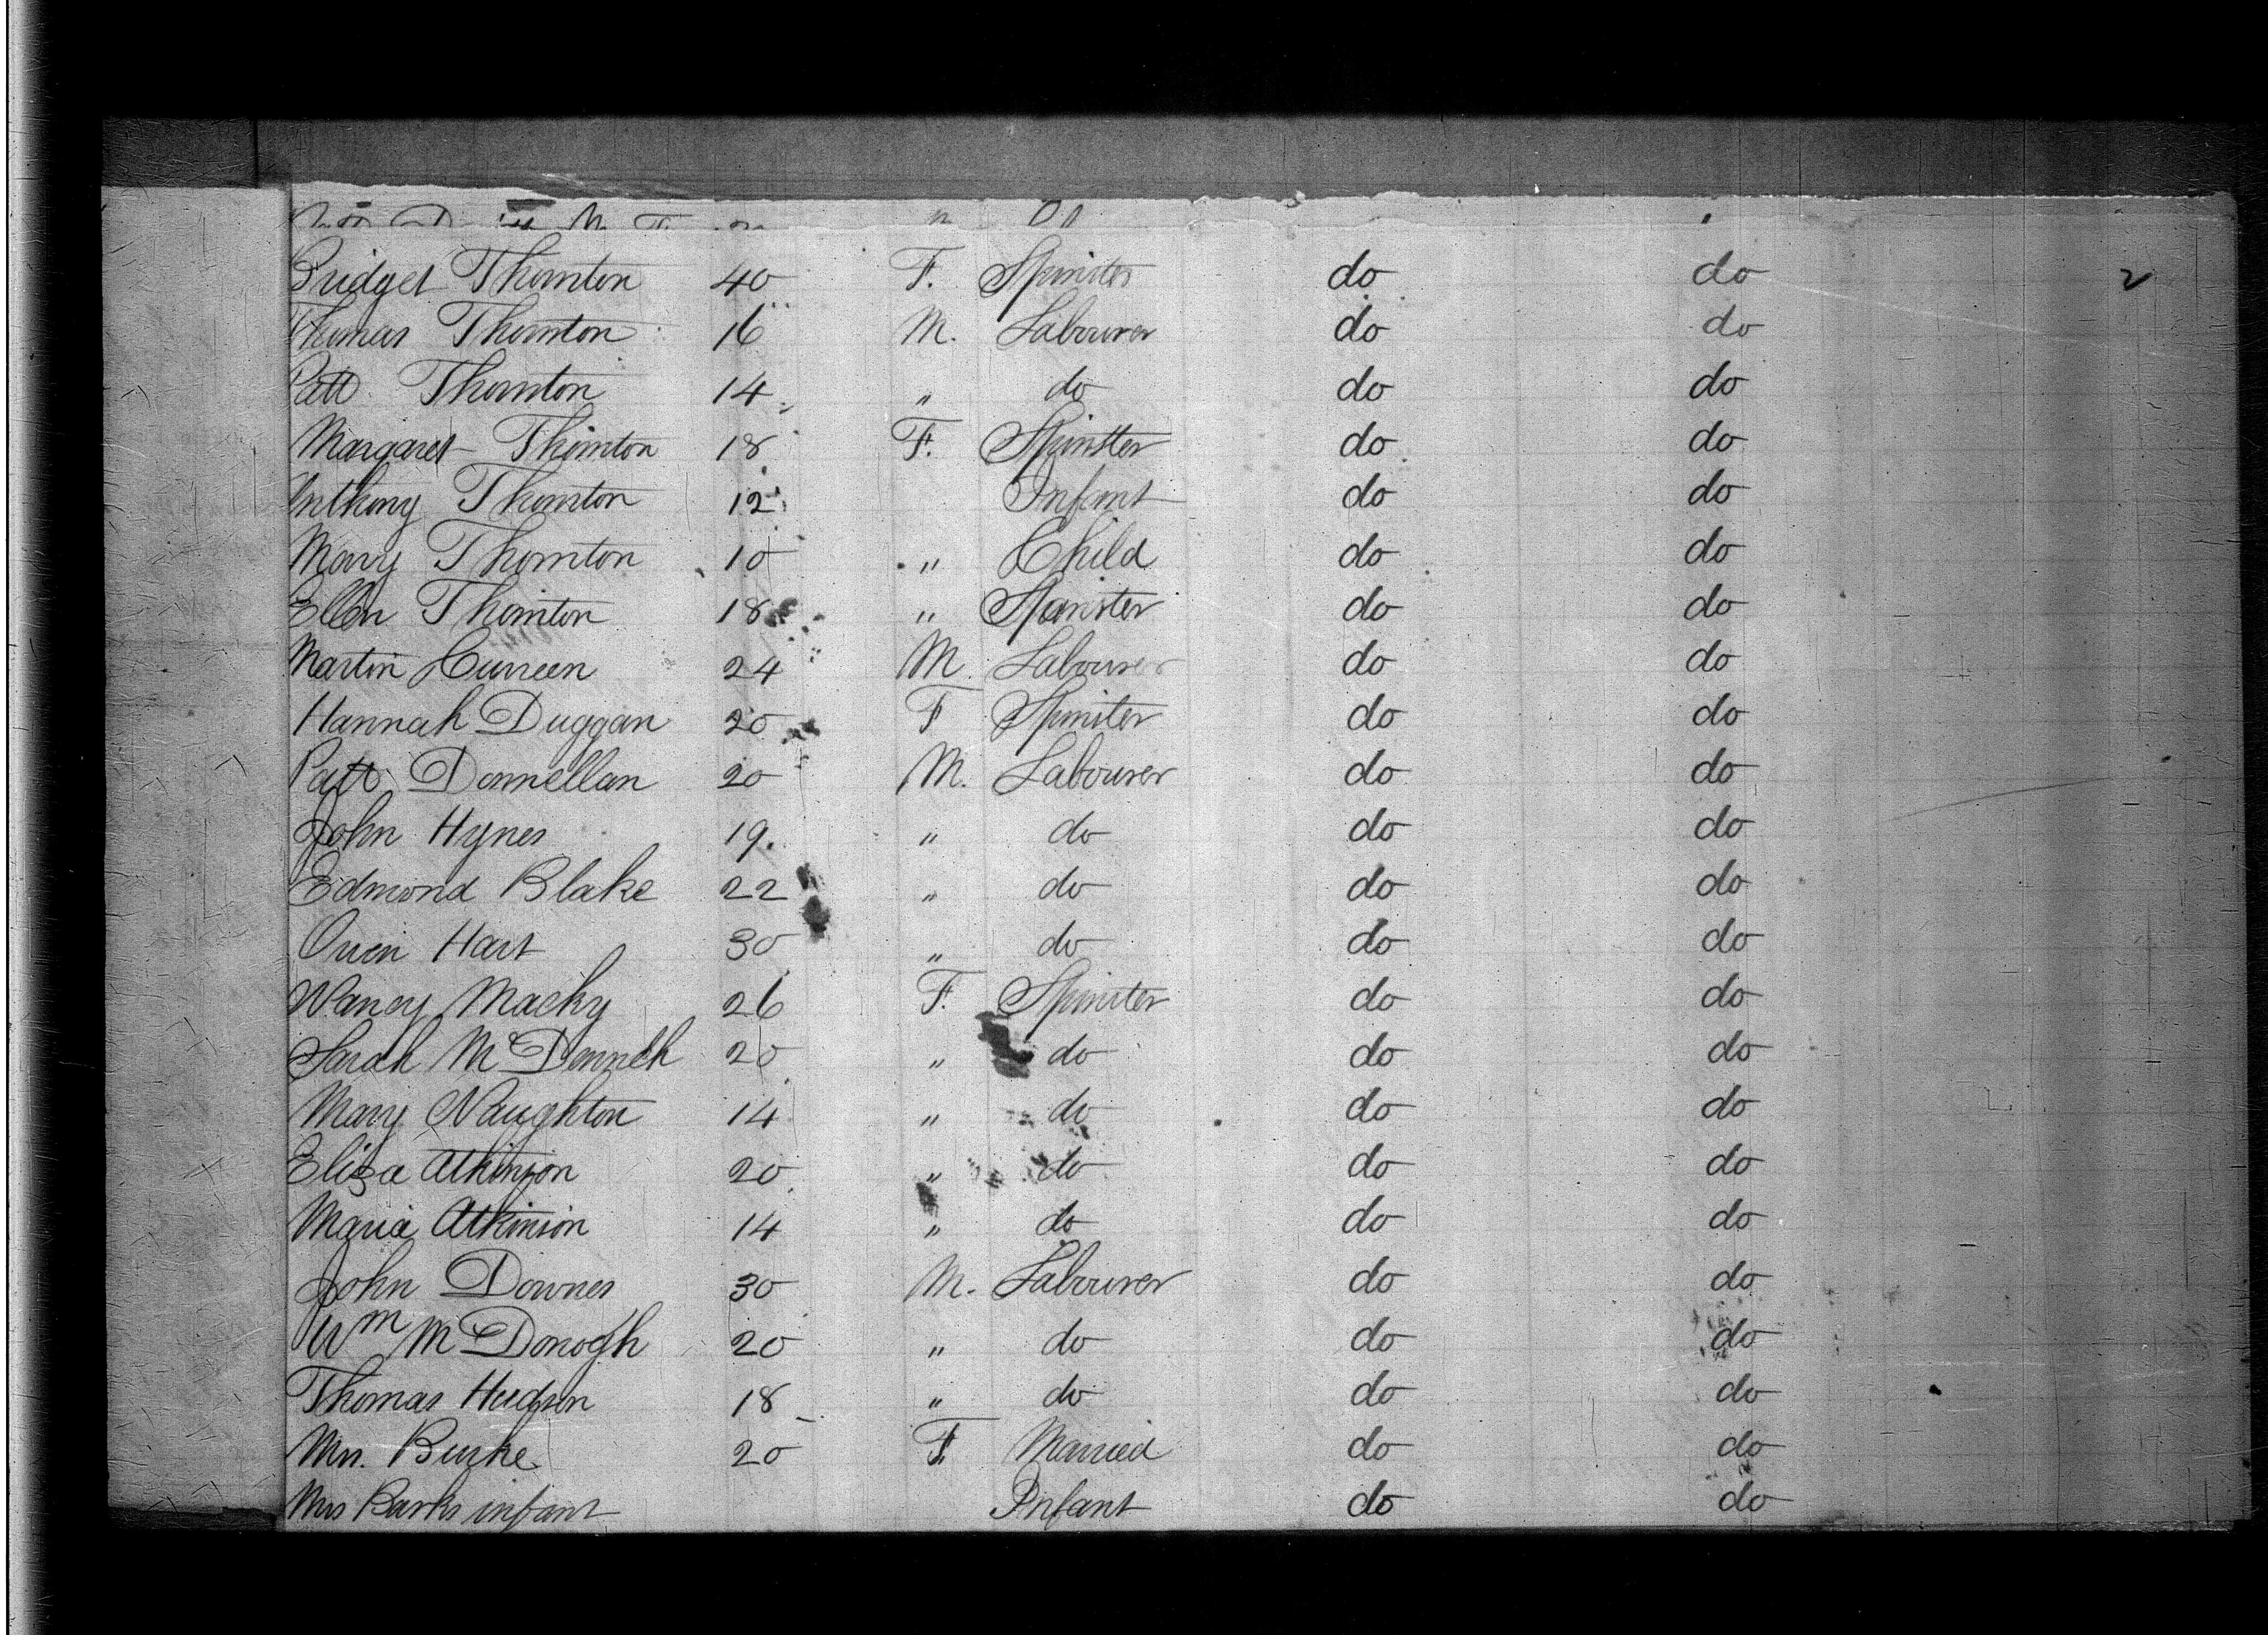 Bridget Thornton 40 F. Spinster do do 2
Thomas Thornton 16 M. Labourer do do
Patt Thornton 14 " do do do
Margaret Thornton 18 F. Spinster do do
Anthony Thornton 12 Infant do do
Mary Thornton 10 " Child do do
Ellen Thornton 18 " Spinster do do
Martin Curreen 24 M. Labourer do do
Hannah Duggan 20 F Spinster do do
Patt Donnellan 20 M. Labourer do do
John Hynes 19. " do do do
Edmond Blake 22 " do do do
Owen Hart 30 " do do do
Nancy Macky 26 F. Spinster do do
Sarah Mc 20 " do do do
Mary Naughton 14 " do do do
Eliza Atkinson 20 " do do do
Maria Atkinson 14 " do do do
John Downes 30 M. Labourer do do
Wm McDonogh 20 " do do do
Thomas Hudson 18 " do do do
Mrs. Burke 20 F. Married do do
Mrs Burks infant Infant do do